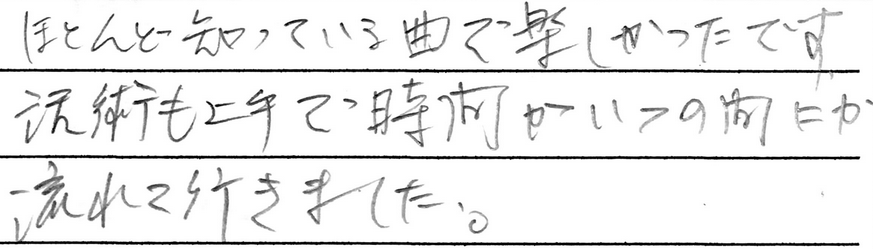 ほとんど知っている曲で楽しかったです
話術も上手で時間がいつの間にか
流れて行きました。